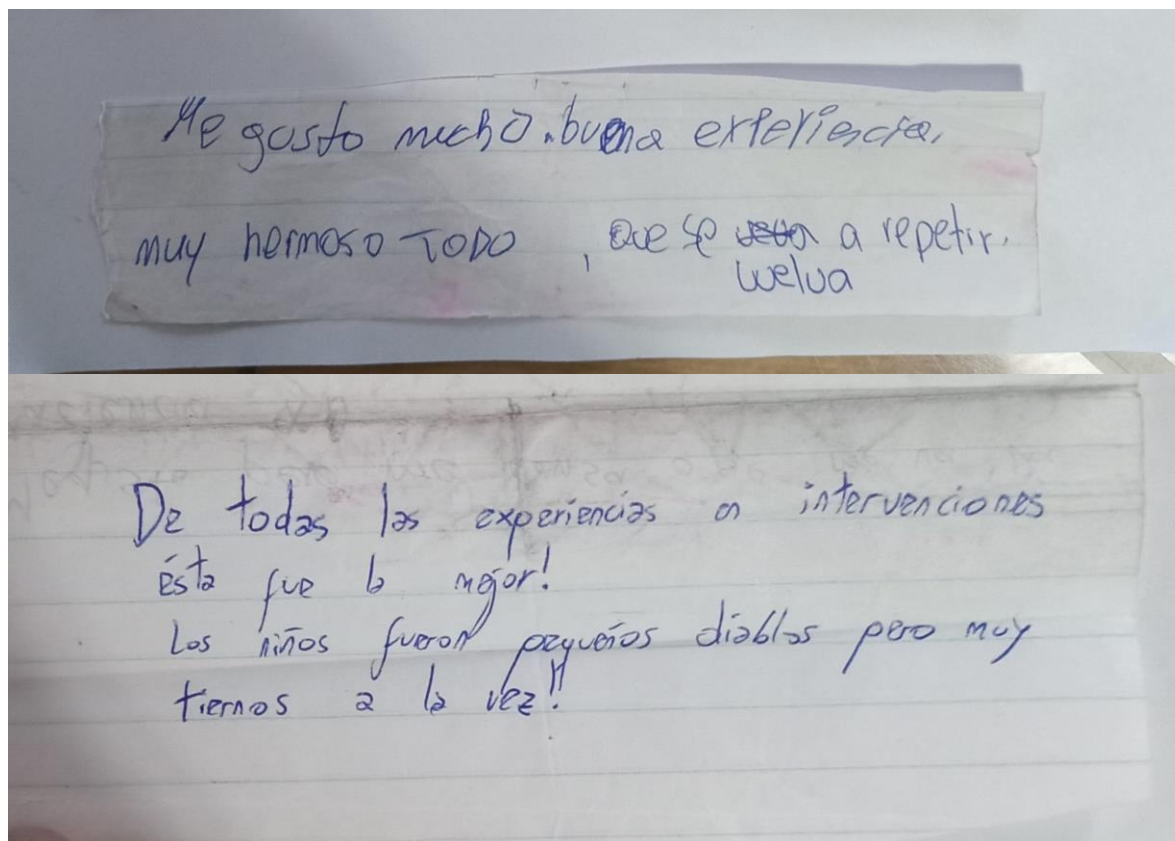 Me gusto mucho. buena experiencia,
muy hermoso TODO , que se a repetir.
welva
De todas las experiencias en intervenciones
ésta fue la mejor!
Los niños fueron pequeños diablos pero muy
tiernos a la vez!!